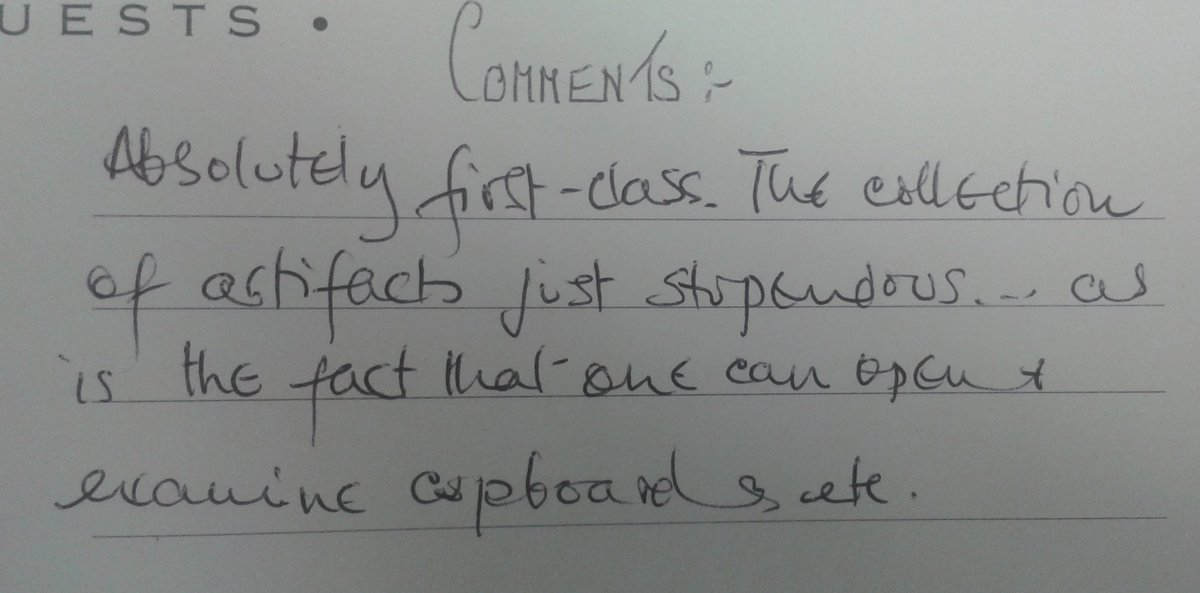 UESTS •
COMMENTS :-
Absolutely first-class. The collection
of artifacts just stupendous... as
is the fact that one can open +
examine cupboards, etc.